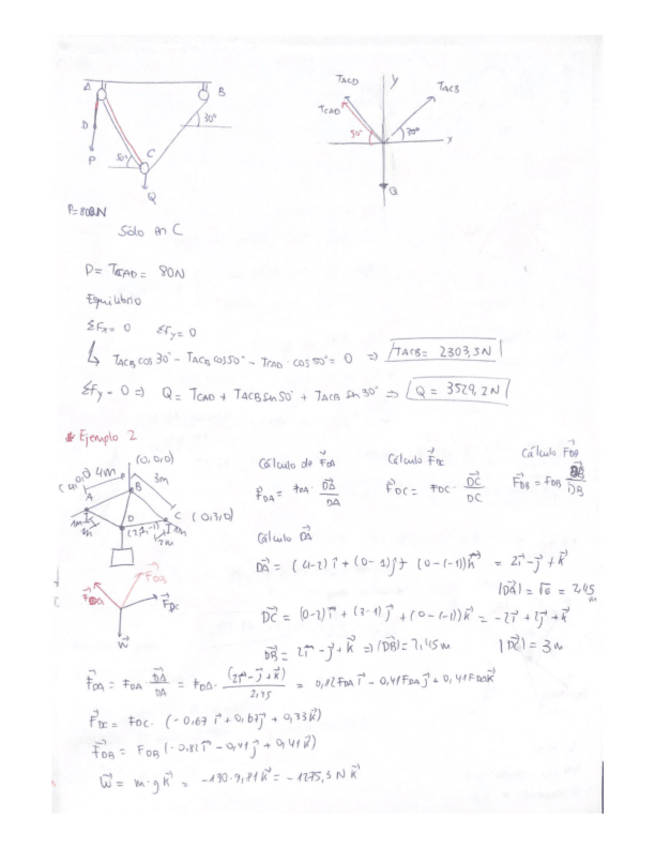 A
B
30°
D
P
50°
C
Q
TACD
y
TACB
TCAD
50°
x
Q
P=800N
Sólo en C
P= TCAD= 80N
Equilibrio
ΣFx= 0 ΣFy= 0
↳ TACB cos 30° - TACB cos50° - TCAD · cos 50° = 0 => TACB= 2303,5N
ΣFy = 0 => Q= TCAD + TACB Sen 50° + TACB Sen 30° => Q = 3529,2N
Ejemplo 2
(0,0,0)
4m
3m
A
B
C (0,3,0)
D
2m
Cálculo de F⃗DA Cálculo F⃗DC Cálculo F⃗DB
F⃗DA= FDA· D⃗A/DA F⃗DC= FDC· D⃗C/DC F⃗DB= FDB D⃗B/DB
Cálculo D⃗A
D⃗A= (4-2)i⃗+(0-1)j⃗+(0-(-1))k⃗ = 2i⃗-j⃗+k⃗
|D⃗A|= √6 = 2,45 m
F⃗DC
W⃗
D⃗C= (0-2)i⃗+(3-1)j⃗+(0-(-1))k⃗= -2i⃗+2j⃗+k⃗
D⃗B= 2i⃗-j⃗+k⃗ => |D⃗B|=2,45m |D⃗C|= 3m
F⃗DA= FDA· D⃗A/DA = FDA· (2i⃗-j⃗+k⃗)/2,45 = 0,82FDA i⃗ - 0,41FDA j⃗ + 0,41FDA k⃗
F⃗DC= FDC· (-0,67i⃗+0,67j⃗+0,33k⃗)
F⃗DB= FDB (-0,82i⃗-0,41j⃗+0,41k⃗)
W⃗= m·g k⃗ = -130·9,81k⃗= -1275,3 N k⃗